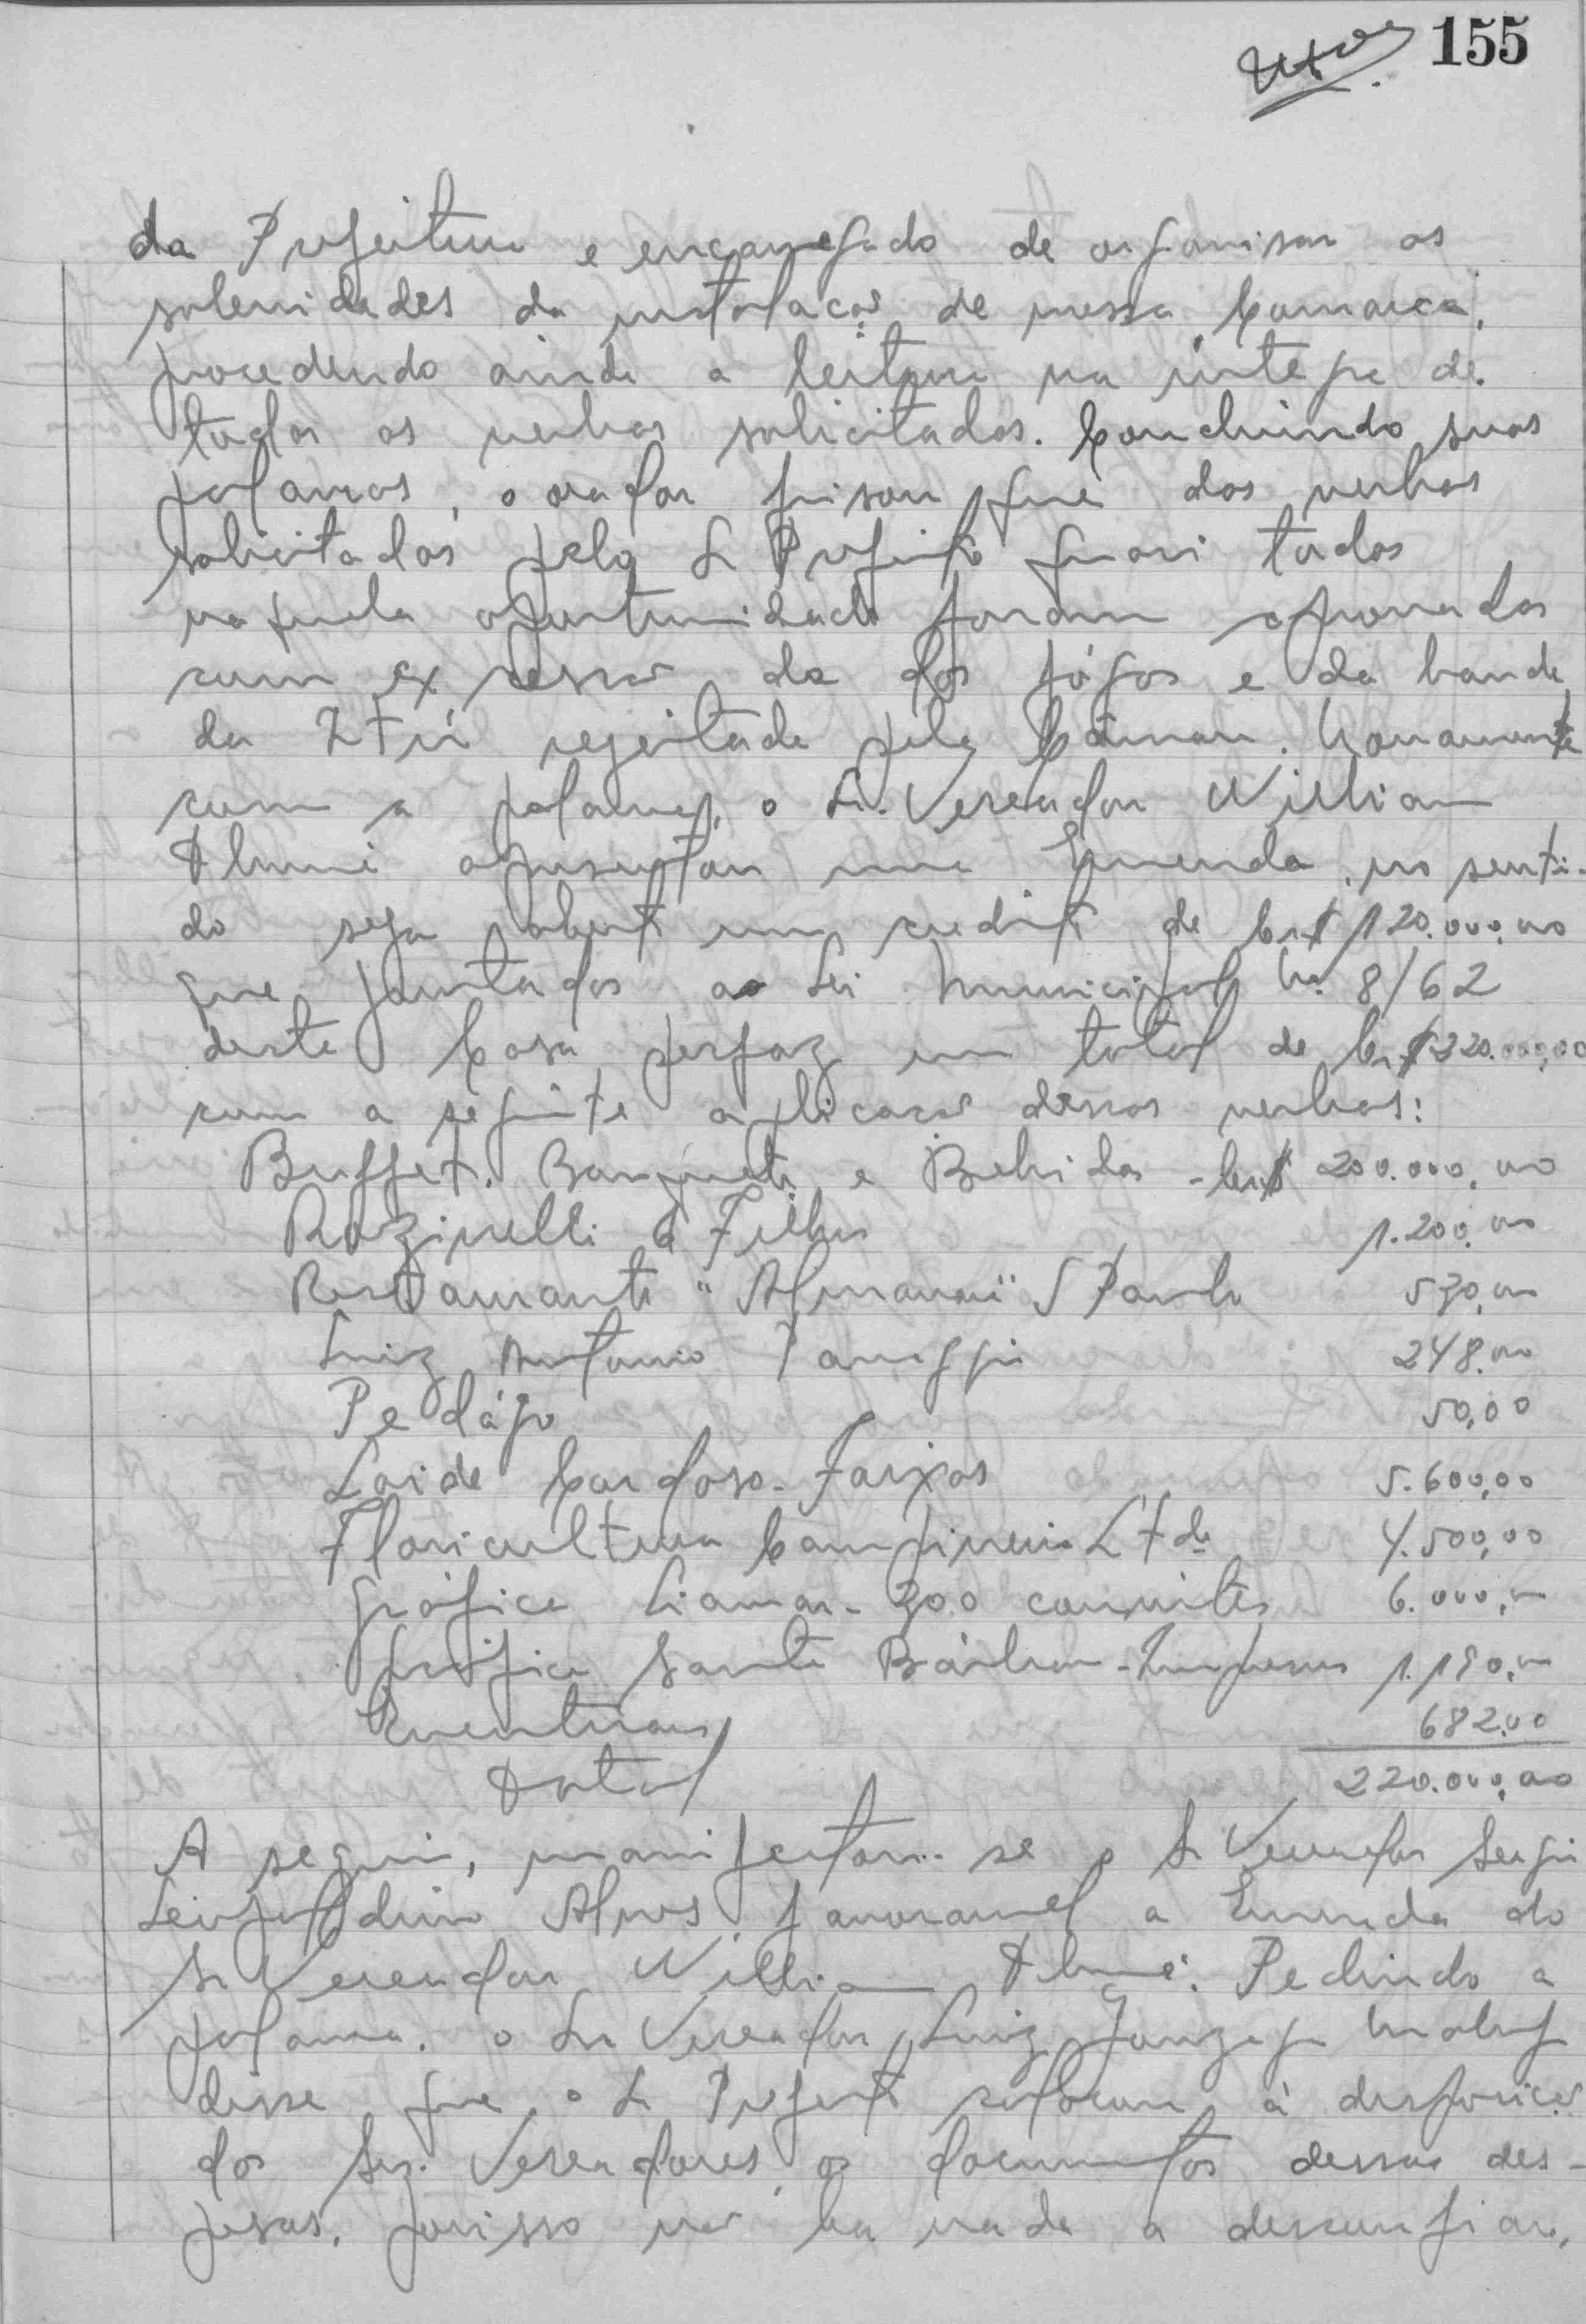 155
da Prefeitura e encarregado de organisar as
solenidades da instalação de nossa Comarca,
procedendo ainda a leitura na íntegra de
todas as verbas solicitadas. Concluindo suas
palavras, o orador frisou que das verbas
solicitadas pelo Sr Prefeito quasi todas
naquela oportunidade foram aprovadas
com excessão da dos fógos e da banda
da Itú rejeitada pela Câmara. Novamente
com a palavra, o Sr. Vereador Willian
apresentou uma Emenda, no senti-
do seja aberto um credito de Cr$ 120.000,00
que juntados ao Lei Municipal Nº 8/62
desta Casa perfaz um total de Cr$ 220.000,00
com a seguinte aplicação dessas verbas:
Buffet, Banquete e Bebidas - Cr$ 200.000,00
Razinelli & Filhos 1.200,00
Restaurante " " S Paulo 530,00
Luiz Antonio 248,00
Pedágio 50,00
Laide Cardoso - Faixas 5.600,00
Floricultura Campineira Ltda 4.500,00
Gráfica - 300 convites 6.000,00
Gráfica Santa Bárbara - Impressos 1.190,00
Eventuais 682,00
Total 220.000,00
A seguir, manifestou-se o Sr Vereador Sergio
Leopoldino Alves, favoravel a Emenda do
Sr Vereador Willian Pedindo a
palavra, o Sr Vereador Luiz Gonzaga
disse que o Sr Prefeito colocou à disposição
dos Srs. Vereadores os documentos dessas des-
pesas, porisso não ha nada a desconfiar,